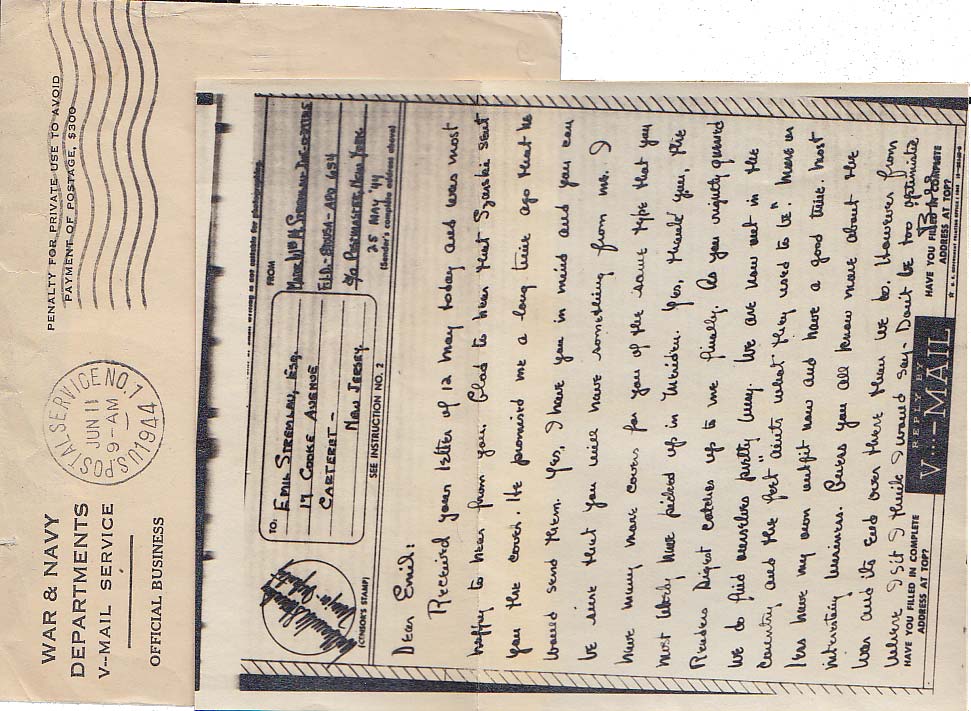 WAR & NAVY
DEPARTMENTS
V--MAIL SERVICE
OFFICIAL BUSINESS
U.S. POSTAL SERVICE NO. 1
JUN 11
9-AM
1944
PENALTY FOR PRIVATE USE TO AVOID
PAYMENT OF POSTAGE, $300
(CENSOR'S STAMP)
TO:
EMIL STREMLAU, ESQ.
17 COOKE AVENUE
CARTERET-
NEW JERSEY
SEE INSTRUCTION NO. 2
FROM
APO 634
c/o POSTMASTER, NEW YORK
25 MAY '44
(Sender's complete address above)
Dear Emil:
Received your letter of 12 May today and was most
happy to hear from you. Glad to hear that sent
you the cover. He promised me a long time ago that he
would send them. Yes, I have you in mind and you can
be sure that you will have something from me. I
have many more covers for you of the same type that you
most likely have picked up in Meriden. Yes, thank you, the
Readers Digest catches up to me finally. As you vaguely
we do find ourselves pretty busy. We are now out in the
country and the feet "aint what they used to be." Have
less have my own outfit now and have a good time. Most
interesting business. Guess you all know more about the
war and its end over there than we do. However from
where I sit I think I would say- Don't be too optimistic
HAVE YOU FILLED IN COMPLETE
ADDRESS AT TOP?
REPLY BY
V···–MAIL
HAVE YOU FILLED IN COMPLETE
ADDRESS AT TOP?
Bill